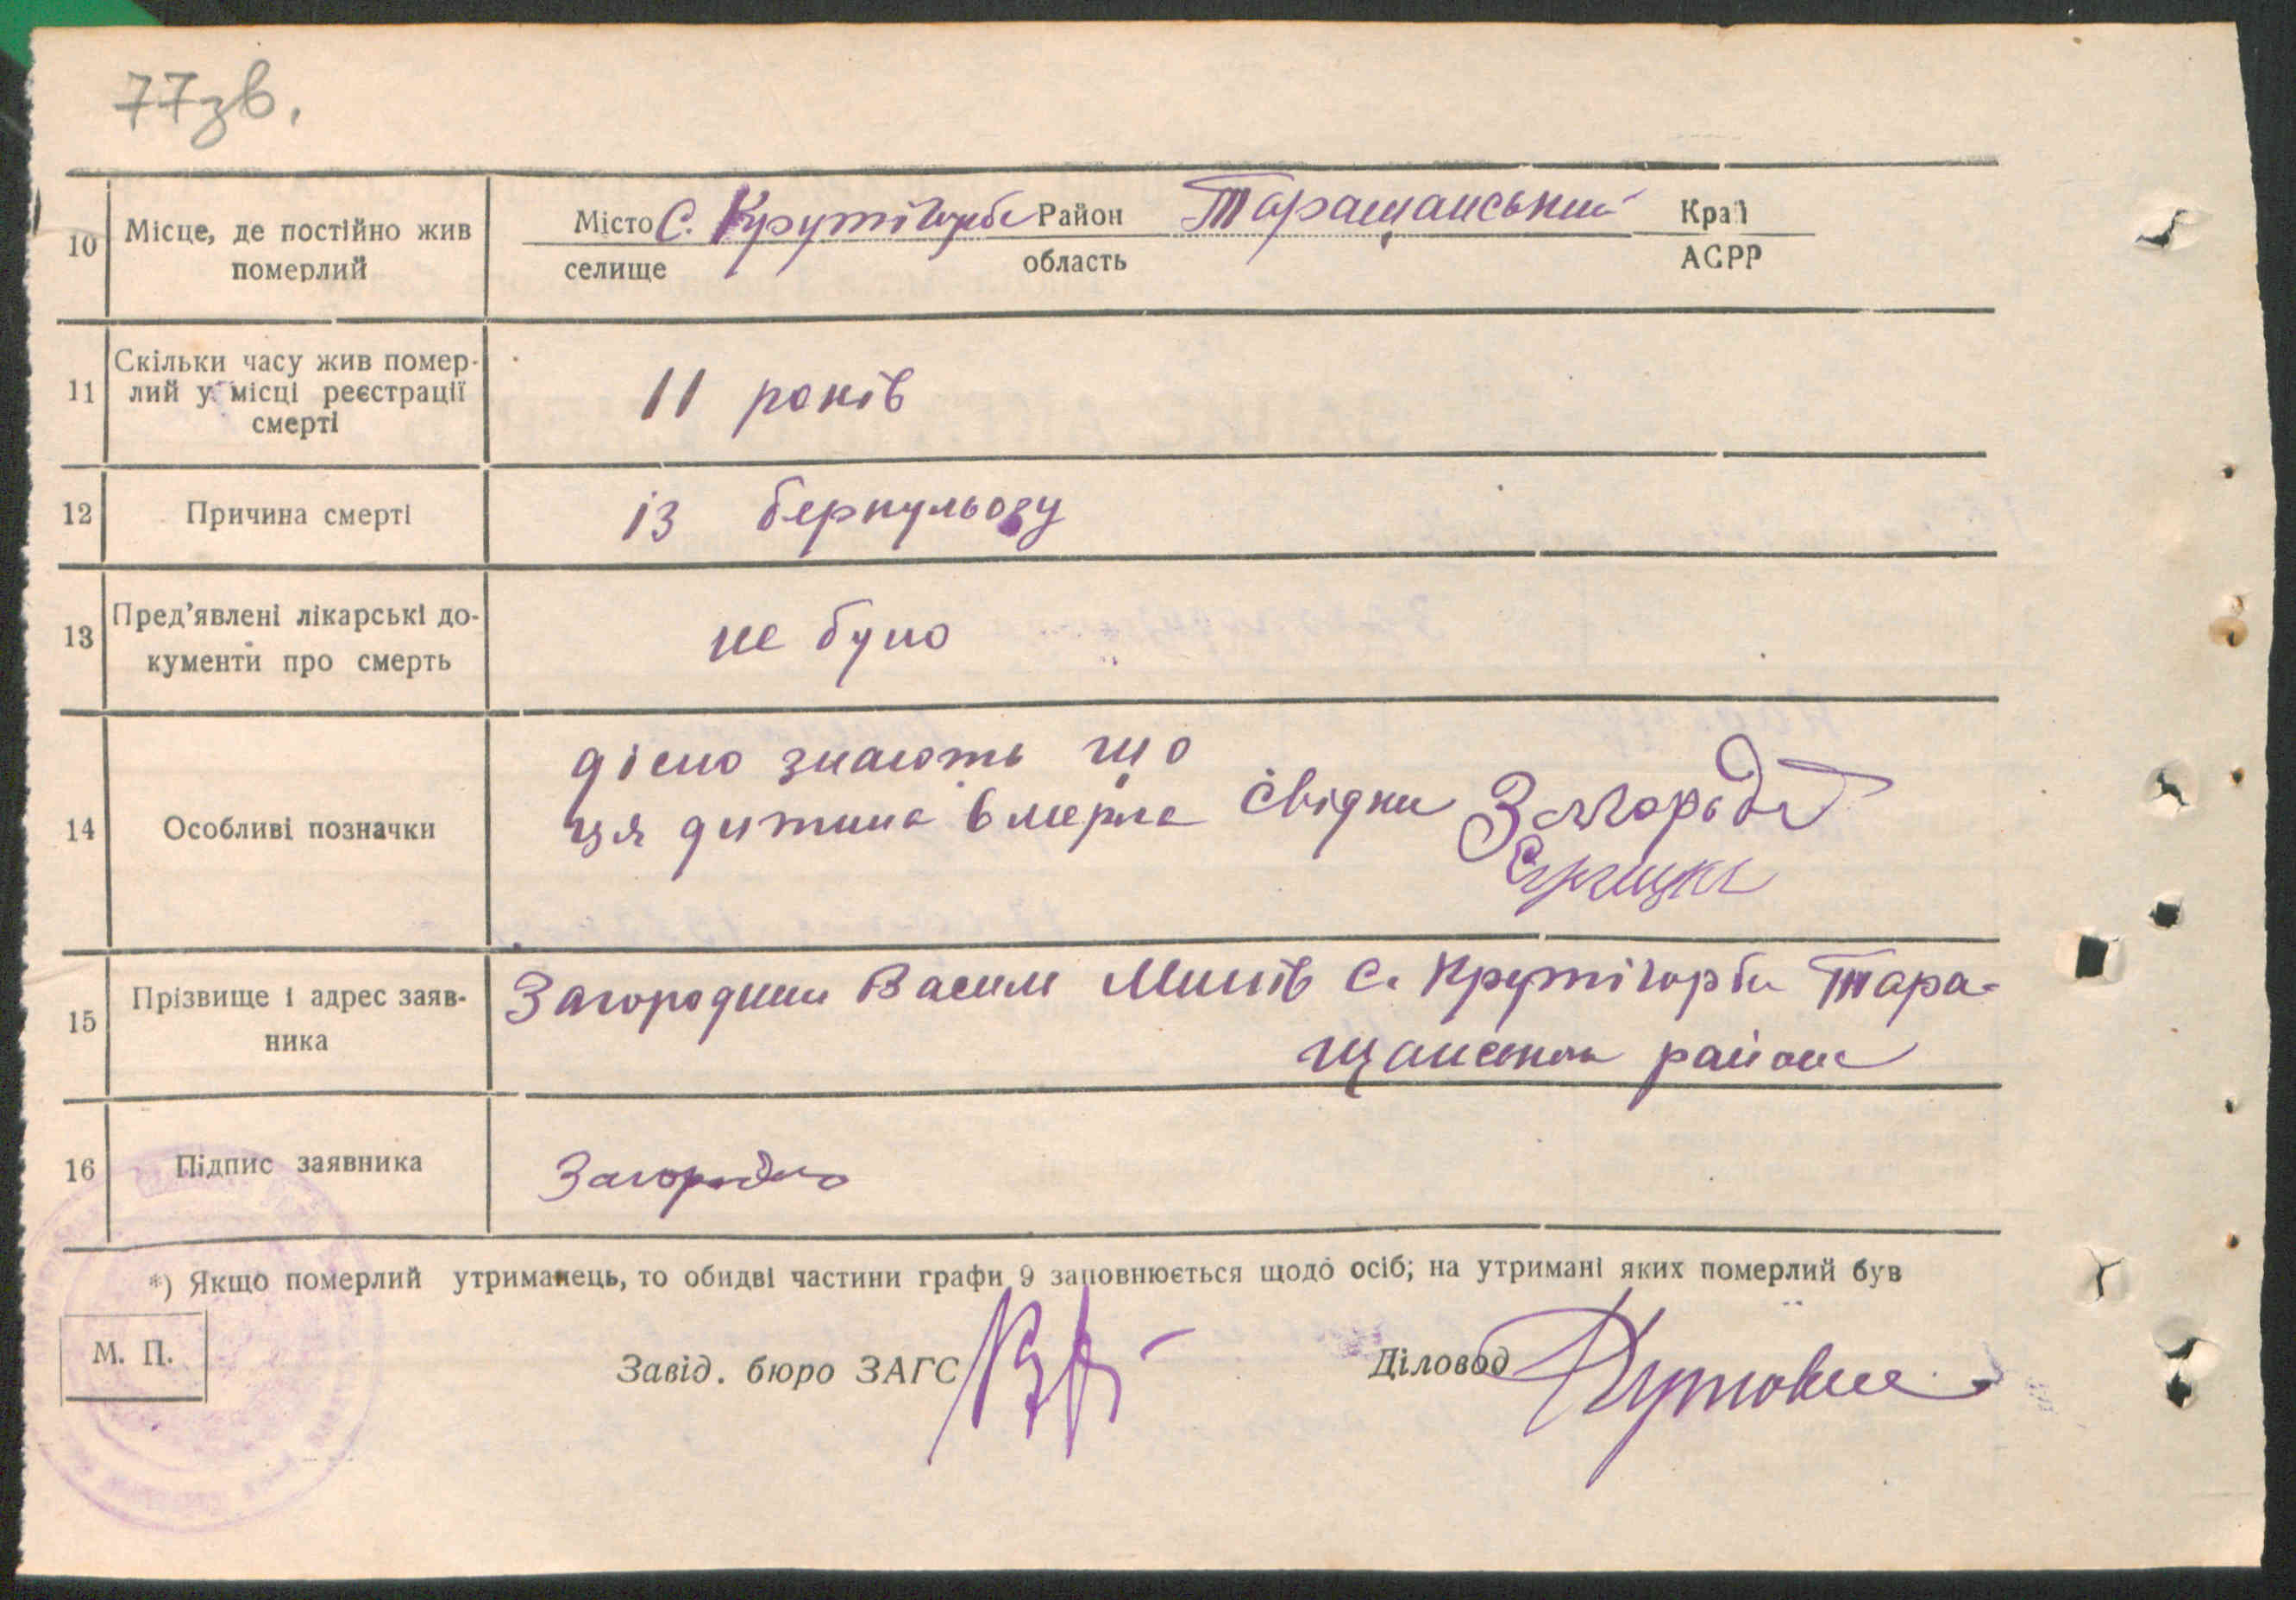 77зв.
10 Місце, де постійно жив померлий
Місто С. Крутігорби Район Таращанський Край
селище область АСРР
11 Скільки часу жив помер-
лий у місці реєстрації
смерті
11 років
12 Причина смерті
із беркульозу
13 Пред'явлені лікарські до-
кументи про смерть
не було
14 Особливі позначки
дісно знають що
ця дитина вмерла свідки
15 Прізвище і адрес заяв-
ника
Загородний Василь с. Крутігорби Тара-
щанськ района
16 Підпис заявника
Загородно
*) Якщо померлий утриманець, то обидві частини графи 9 заповнюється щодо осіб; на утримані яких померлий був
М. П.
Завід. бюро ЗАГС
Діловод